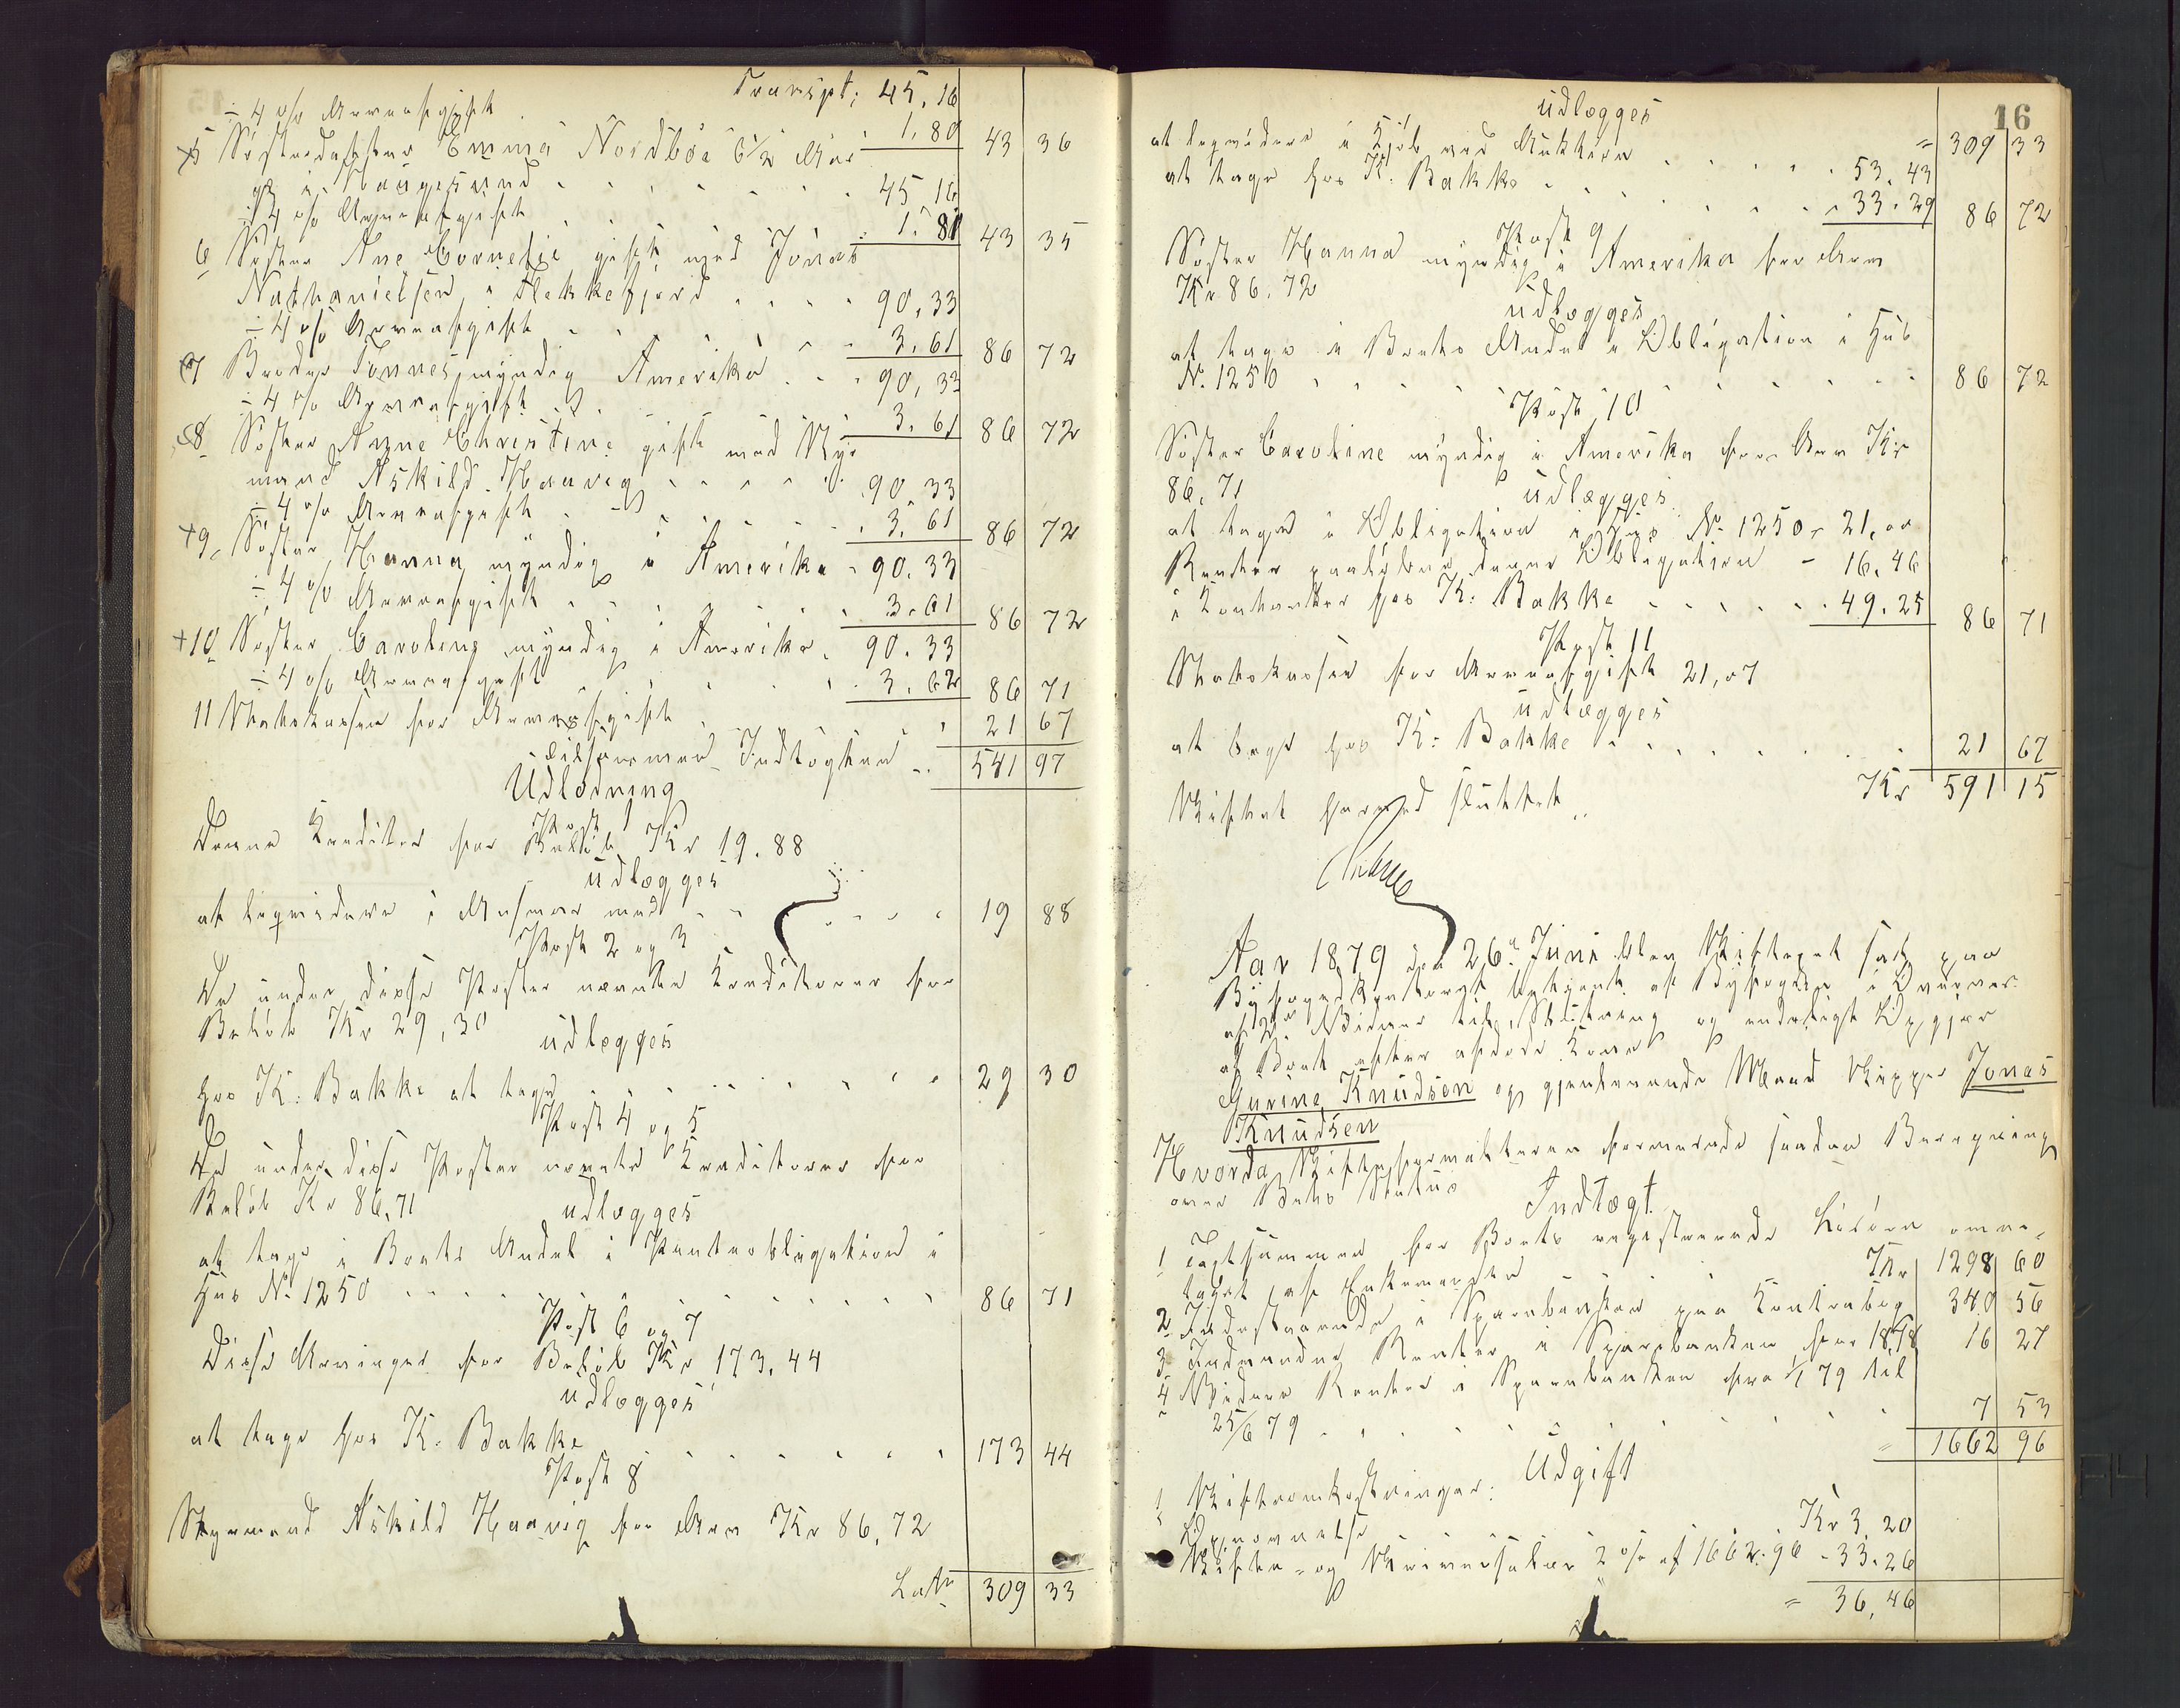 Transpt: 45,16
÷ 4 % Arveafgift . 1.80 43 36
5 Søsterdatter Emma Nordbøe 6½ Aar
gl i Haugesund . . . . . . . 45 16
÷ 4 % Arveafgift . . . . 1.81 43 35
6 Søster Ane Cornelie gift med Jonas
Nathanielsen i Flekkefjord . . . . 90,33
÷ 4 % Arveafgift . . . . 3.61 86 72
7 Broder Tønnes, myndig Amerika . . . 90,33
÷ 4 % Arveafgift . . 3.61 86 72
8 Søster Anne Christine gift med Styr
mand Askild Haavig . . . . . 90.33
÷ 4 % Arveafgift . . . . . 3.61 86 72
9, Søster Hanna myndig i Amerika - 90.33
÷ 4 % Arveafgift . . . . . . . 3.61 86 72
10 Søster Caroline myndig i Amerika. 90.33
÷ 4 % Arveafgift . . . . . 3.62 86 71
11 Statskassen for Arveafgift . . . . 21 67
Tilsammen Indtægten .. 541 97
Udlodning
Post 1
Denne Kreditor for Beløb Kr 19.88
udlægges
at liqvidere i Masmar med . . . . . . 19 88
Post 2 og 3
De under disse Poster nævnte Kreditorer for
Beløb Kr 29,30
udlægges
hos K: Bakke at tage . . . . . . . . 29 30
Post 4 og 5
De under disse Poster nævnte Kreditorer for
Beløb Kr 86,71
udlægges
at tage i Boets Andel i Panteobligation i
Hus No 1250 . . . . . . . . . . . 86 71
Post 6 og 7
Disse Arvinger for Beløb Kr 173,44
udlægges
at tage hos K: Bakke . . . . . . . 173 44
Post 8
Styrmand Askild Haavig for Arv Kr 86,72
Latr 309 33
16
udlægges = 309 33
at liqvidere i Kjøb ved Auktion . . . . . 53.43
at tage hos K: Bakke . . . . . . . . 33.29 86 72
Post 9
Søster Hanna myndig i Amerika for Arv
Kr 86.72
udlægges
at tage i Boets Andel i Obligation i Hus
No. 1250 . . . . . . . . . . . . 86 72
Post 10
Søster Caroline myndig i Amerika for Arv Kr
86,71
udlægges
at tage i Obligation i Hus No 1250 - 21,00
Renter paaløbne denne Obligation - 16.46
i Kontanter hos K: Bakke . . . . . . 49.25 86 71
Post 11
Statskassen for Arveafgift 21,67
udlægges
at tage hos K: Bakke . . . . . . . . 21 67
Kr 591 15
Skiftet hermed sluttet..
Aar 1879 den 26de Juni blev Skifteret sat paa
Byfogedkontoret betjent af Byfogden i Overvær
af 2de Vidner til Slutning og endeligt Opgjør
af Boet efter afdøde Kone
Gurine Knudsen og gjenlevende Mand Skipper Jonas
Knudsen
Hvorda Skifteforvalteren formerede saadan Beregning
over Boets Status
Indtægt
1 Taxtsummen for Boets registrerede Løsøre over-
taget af Enkemanden . . . . Kr 1298 60
2 Indestaaende i Sparebanken paa Kontrabog 340 56
3 Indvundne Renter i Sparebanken for 1878 16 27
4 Videre Renter i Sparebanken fra 1/1 79 til
25/6 79 . . . . . . . . . . 7 53
= 1662 96
Udgift
1 Skifteomkostninger:
Opnævnelse Kr 3.20
Skifte- og Skriversalær 2 % af 1662.96 - 33.26
= 36,46